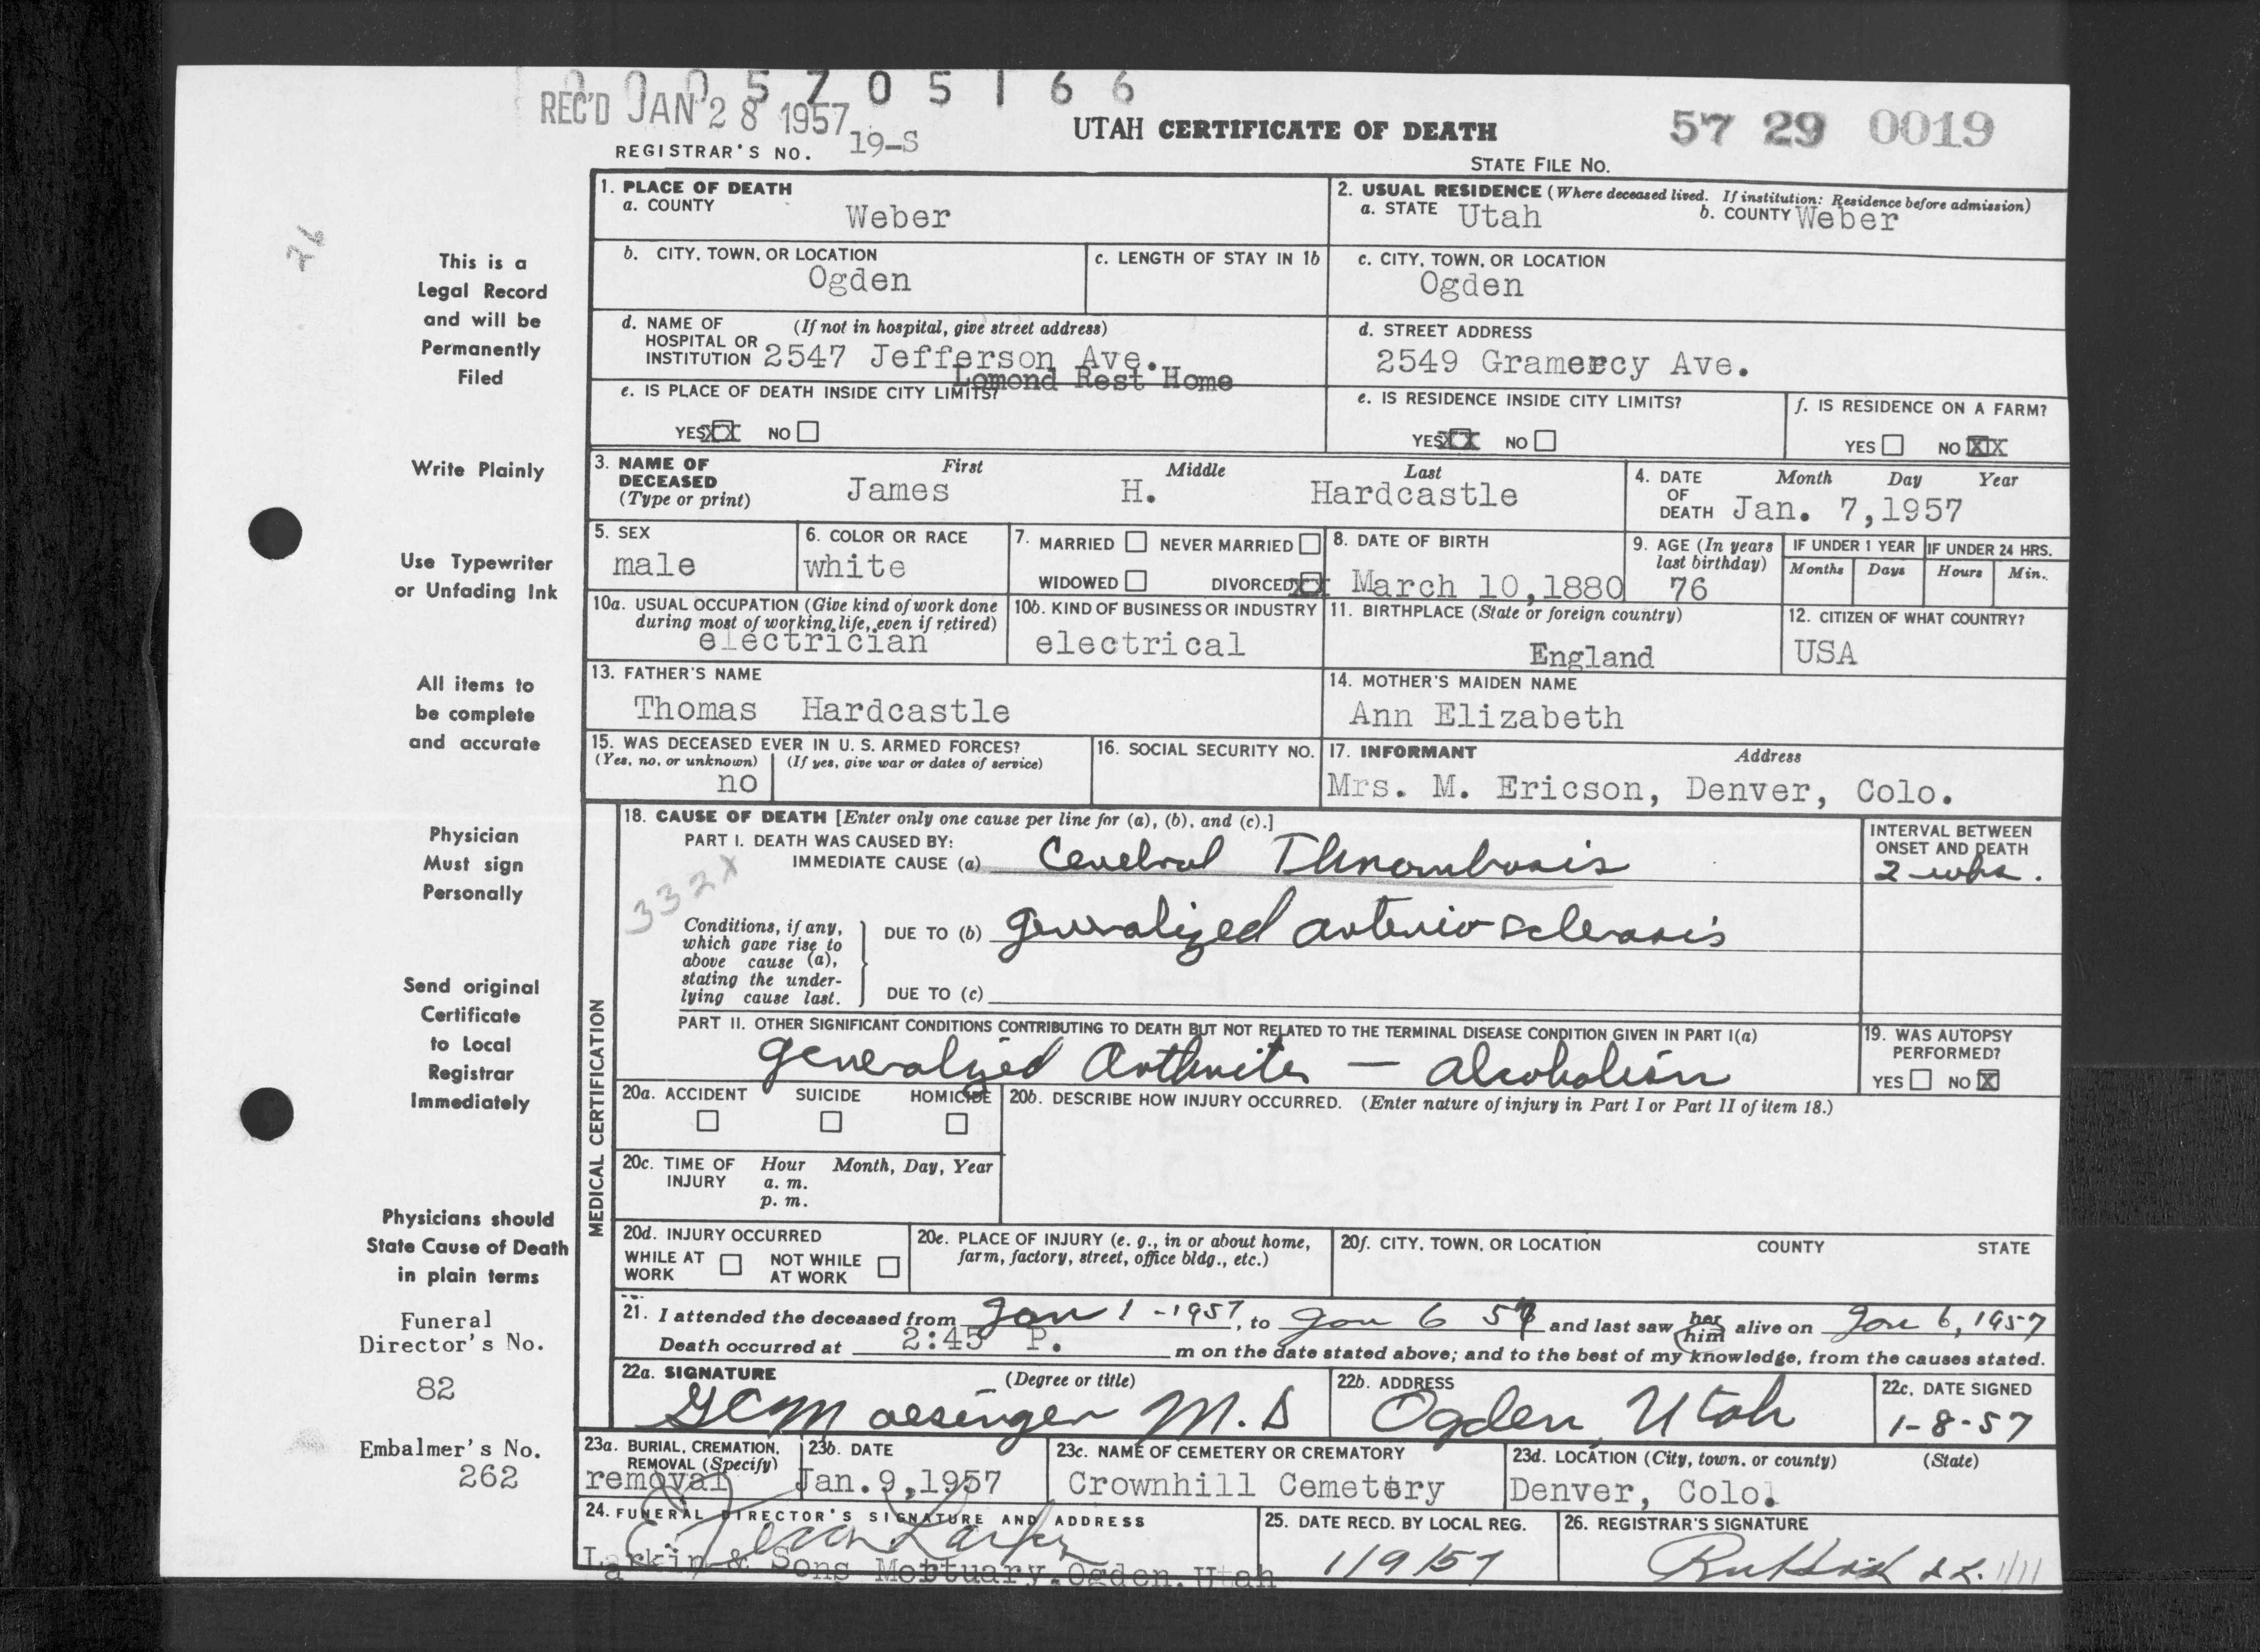 0005705166
REC'D JAN 28 1957
UTAH CERTIFICATE OF DEATH
57 29 0019
REGISTRAR'S NO. 19-S
STATE FILE NO.
26
This is a
Legal Record
and will be
Permanently
Filed
Write Plainly
Use Typewriter
or Unfading Ink
All items to
be complete
and accurate
Physician
Must sign
Personally
Send original
Certificate
to Local
Registrar
Immediately
Physicians should
State Cause of Death
in plain terms
Funeral
Director's No.
82
Embalmer's No.
262
1. PLACE OF DEATH
a. COUNTY
Weber
2. USUAL RESIDENCE (Where deceased lived. If institution: Residence before admission)
a. STATE Utah b. COUNTY Weber
b. CITY, TOWN, OR LOCATION
Ogden
c. LENGTH OF STAY IN 1b
c. CITY, TOWN, OR LOCATION
Ogden
d. NAME OF (If not in hospital, give street address)
HOSPITAL OR
INSTITUTION 2547 Jefferson Ave.
Lomond Rest Home
d. STREET ADDRESS
2549 Gramercy Ave.
e. IS PLACE OF DEATH INSIDE CITY LIMITS?
YES XX NO
e. IS RESIDENCE INSIDE CITY LIMITS?
YES XX NO
f. IS RESIDENCE ON A FARM?
YES NO XX
3. NAME OF First Middle Last
DECEASED
(Type or print) James H. Hardcastle
4. DATE Month Day Year
OF
DEATH Jan. 7,1957
5. SEX
male
6. COLOR OR RACE
white
7. MARRIED NEVER MARRIED
WIDOWED DIVORCED XX
8. DATE OF BIRTH
March 10,1880
9. AGE (In years
last birthday)
76
IF UNDER 1 YEAR
Months Days
IF UNDER 24 HRS.
Hours Min.
10a. USUAL OCCUPATION (Give kind of work done
during most of working life, even if retired)
electrician
10b. KIND OF BUSINESS OR INDUSTRY
electrical
11. BIRTHPLACE (State or foreign country)
England
12. CITIZEN OF WHAT COUNTRY?
USA
13. FATHER'S NAME
Thomas Hardcastle
14. MOTHER'S MAIDEN NAME
Ann Elizabeth
15. WAS DECEASED EVER IN U. S. ARMED FORCES?
(Yes, no, or unknown) (If yes, give war or dates of service)
no
16. SOCIAL SECURITY NO.
17. INFORMANT Address
Mrs. M. Ericson, Denver, Colo.
MEDICAL CERTIFICATION
18. CAUSE OF DEATH [Enter only one cause per line for (a), (b), and (c).]
PART I. DEATH WAS CAUSED BY:
IMMEDIATE CAUSE (a) Cerebral Thrombosis
INTERVAL BETWEEN
ONSET AND DEATH
2 wks.
332X
Conditions, if any,
which gave rise to
above cause (a),
stating the under-
lying cause last.
DUE TO (b) generalized arterio sclerosis
DUE TO (c)
PART II. OTHER SIGNIFICANT CONDITIONS CONTRIBUTING TO DEATH BUT NOT RELATED TO THE TERMINAL DISEASE CONDITION GIVEN IN PART I(a)
generalized Arthritis — alcoholism
19. WAS AUTOPSY
PERFORMED?
YES NO X
20a. ACCIDENT SUICIDE HOMICIDE
20b. DESCRIBE HOW INJURY OCCURRED. (Enter nature of injury in Part I or Part II of item 18.)
20c. TIME OF Hour Month, Day, Year
INJURY a. m.
p. m.
20d. INJURY OCCURRED
WHILE AT NOT WHILE
WORK AT WORK
20e. PLACE OF INJURY (e. g., in or about home,
farm, factory, street, office bldg., etc.)
20f. CITY, TOWN, OR LOCATION COUNTY STATE
21. I attended the deceased from Jan 1 - 1957, to Jan 6 57 and last saw her him alive on Jan 6, 1957
Death occurred at 2:45 P. m on the date stated above; and to the best of my knowledge, from the causes stated.
22a. SIGNATURE (Degree or title)
M.D
22b. ADDRESS
Ogden, Utah
22c. DATE SIGNED
1-8-57
23a. BURIAL, CREMATION,
REMOVAL (Specify)
removal
23b. DATE
Jan.9,1957
23c. NAME OF CEMETERY OR CREMATORY
Crownhill Cemetery
23d. LOCATION (City, town, or county) (State)
Denver, Colo.
24. FUNERAL DIRECTOR'S SIGNATURE AND ADDRESS
Larkin & Sons Mortuary,Ogden,Utah
25. DATE RECD. BY LOCAL REG.
1/9/57
26. REGISTRAR'S SIGNATURE